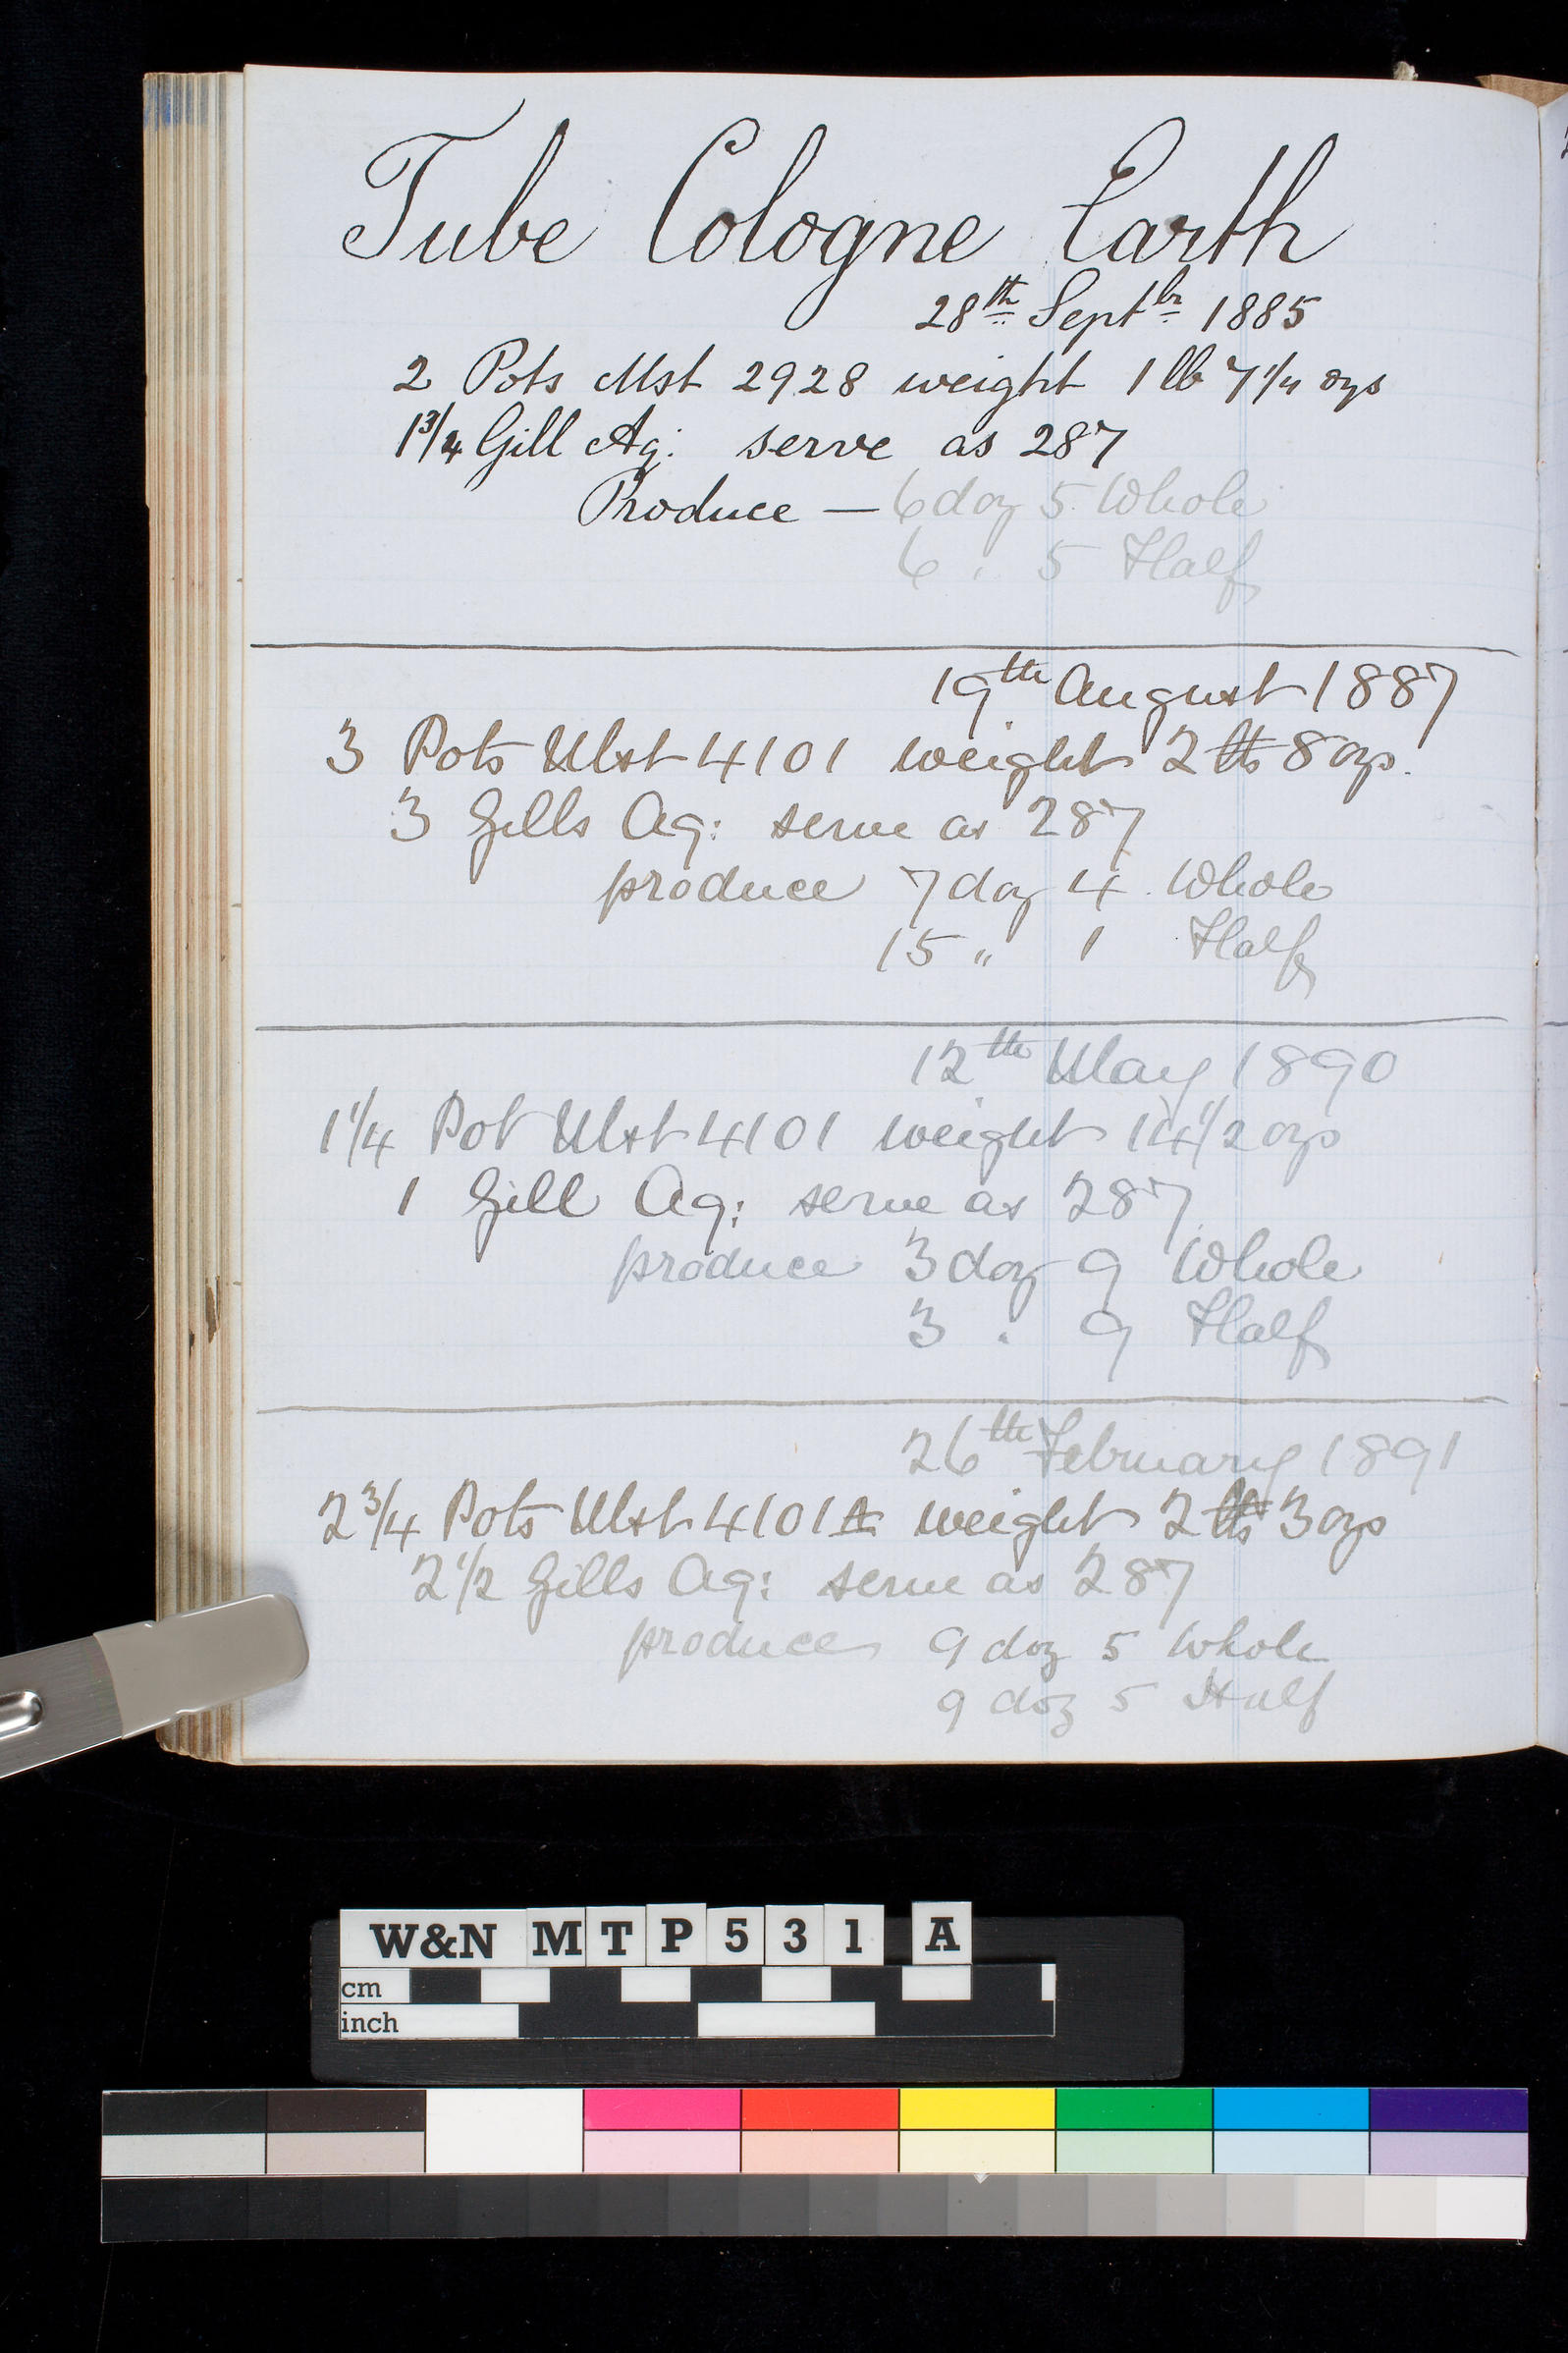 Tube Cologne Earth
28th Septbr 1885
2 Pots Mst 2928 weight 1 lb 7 1/4 ozs
1 3/4 Gill Aq: serve as 287
Produce — 6 doz 5 Whole
6 " 5 Half
19th August 1887
3 Pots Mst 4101 weight 2 lbs 8 ozs.
3 Gills Aq: serve as 287
produce 7 doz 4 Whole
15 " 1 Half
12th May 1890
1 1/4 Pot Mst 4101 weight 14 1/2 ozs
1 Gill Aq: serve as 287
produce 3 doz 9 Whole
3 " 9 Half
26th February 1891
2 3/4 Pots Mst 4101A weight 2 lbs 3 ozs
2 1/2 Gills Aq: serve as 287
produce 9 doz 5 Whole
9 doz 5 Half
W&N MTP531 A
cm
inch